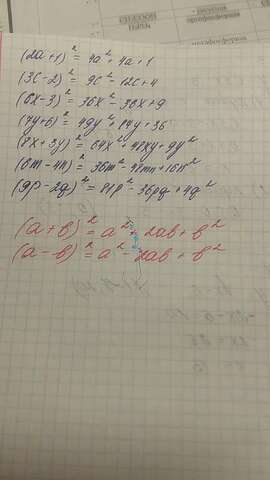 (2a+1)² = 4a² + 4a + 1
(3c-2)² = 9c² - 12c + 4
(6x-3)² = 36x² - 36x + 9
(7y+6)² = 49y² + 84y + 36
(8x+3y)² = 64x² + 48xy + 9y²
(6m-4n)² = 36m² - 48mn + 16n²
(9p-2q)² = 81p² - 36pq + 4q²
(a+b)² = a² + 2ab + b²
(a-b)² = a² - 2ab + b²